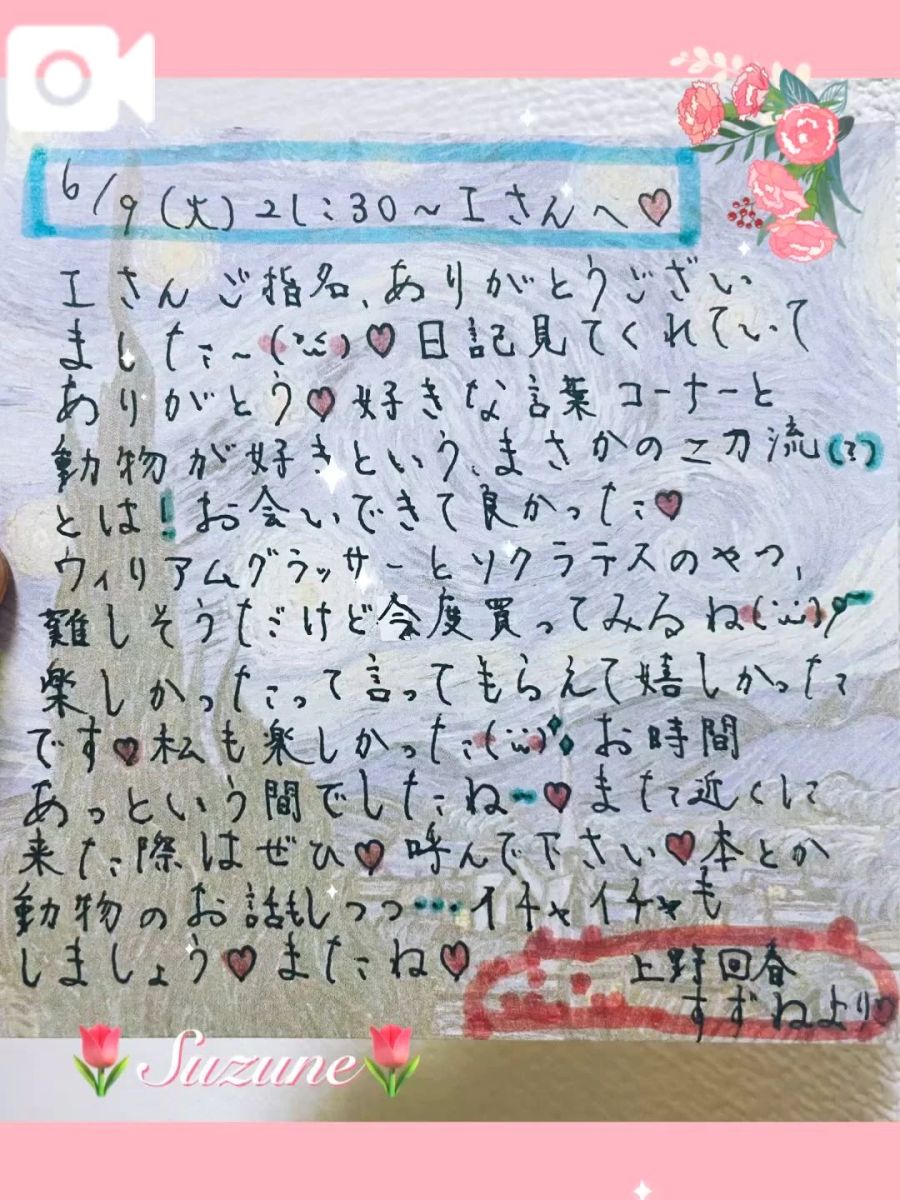 6/9(火)21:30～Iさんへ♡
Iさんご指名、ありがとうござい
ました~(¨̮)♡日記見てくれていて
ありがとう♡好きな言葉コーナーと
動物が好きという、まさかの二刀流(?)
とは!お会いできて良かった♡
ウィリアムグラッサーとソクラテスのやつ、
難しそうだけど今度買ってみるね(¨̮)
楽しかったって言ってもらえて嬉しかった
です♡私も楽しかった(¨̮)お時間
あっという間でしたね…♡また近くに
来た際はぜひ♡呼んで下さい♡本とか
動物のお話もしつつ…イチャイチャも
しましょう♡またね♡
上野回春
すずねより♡
Suzune